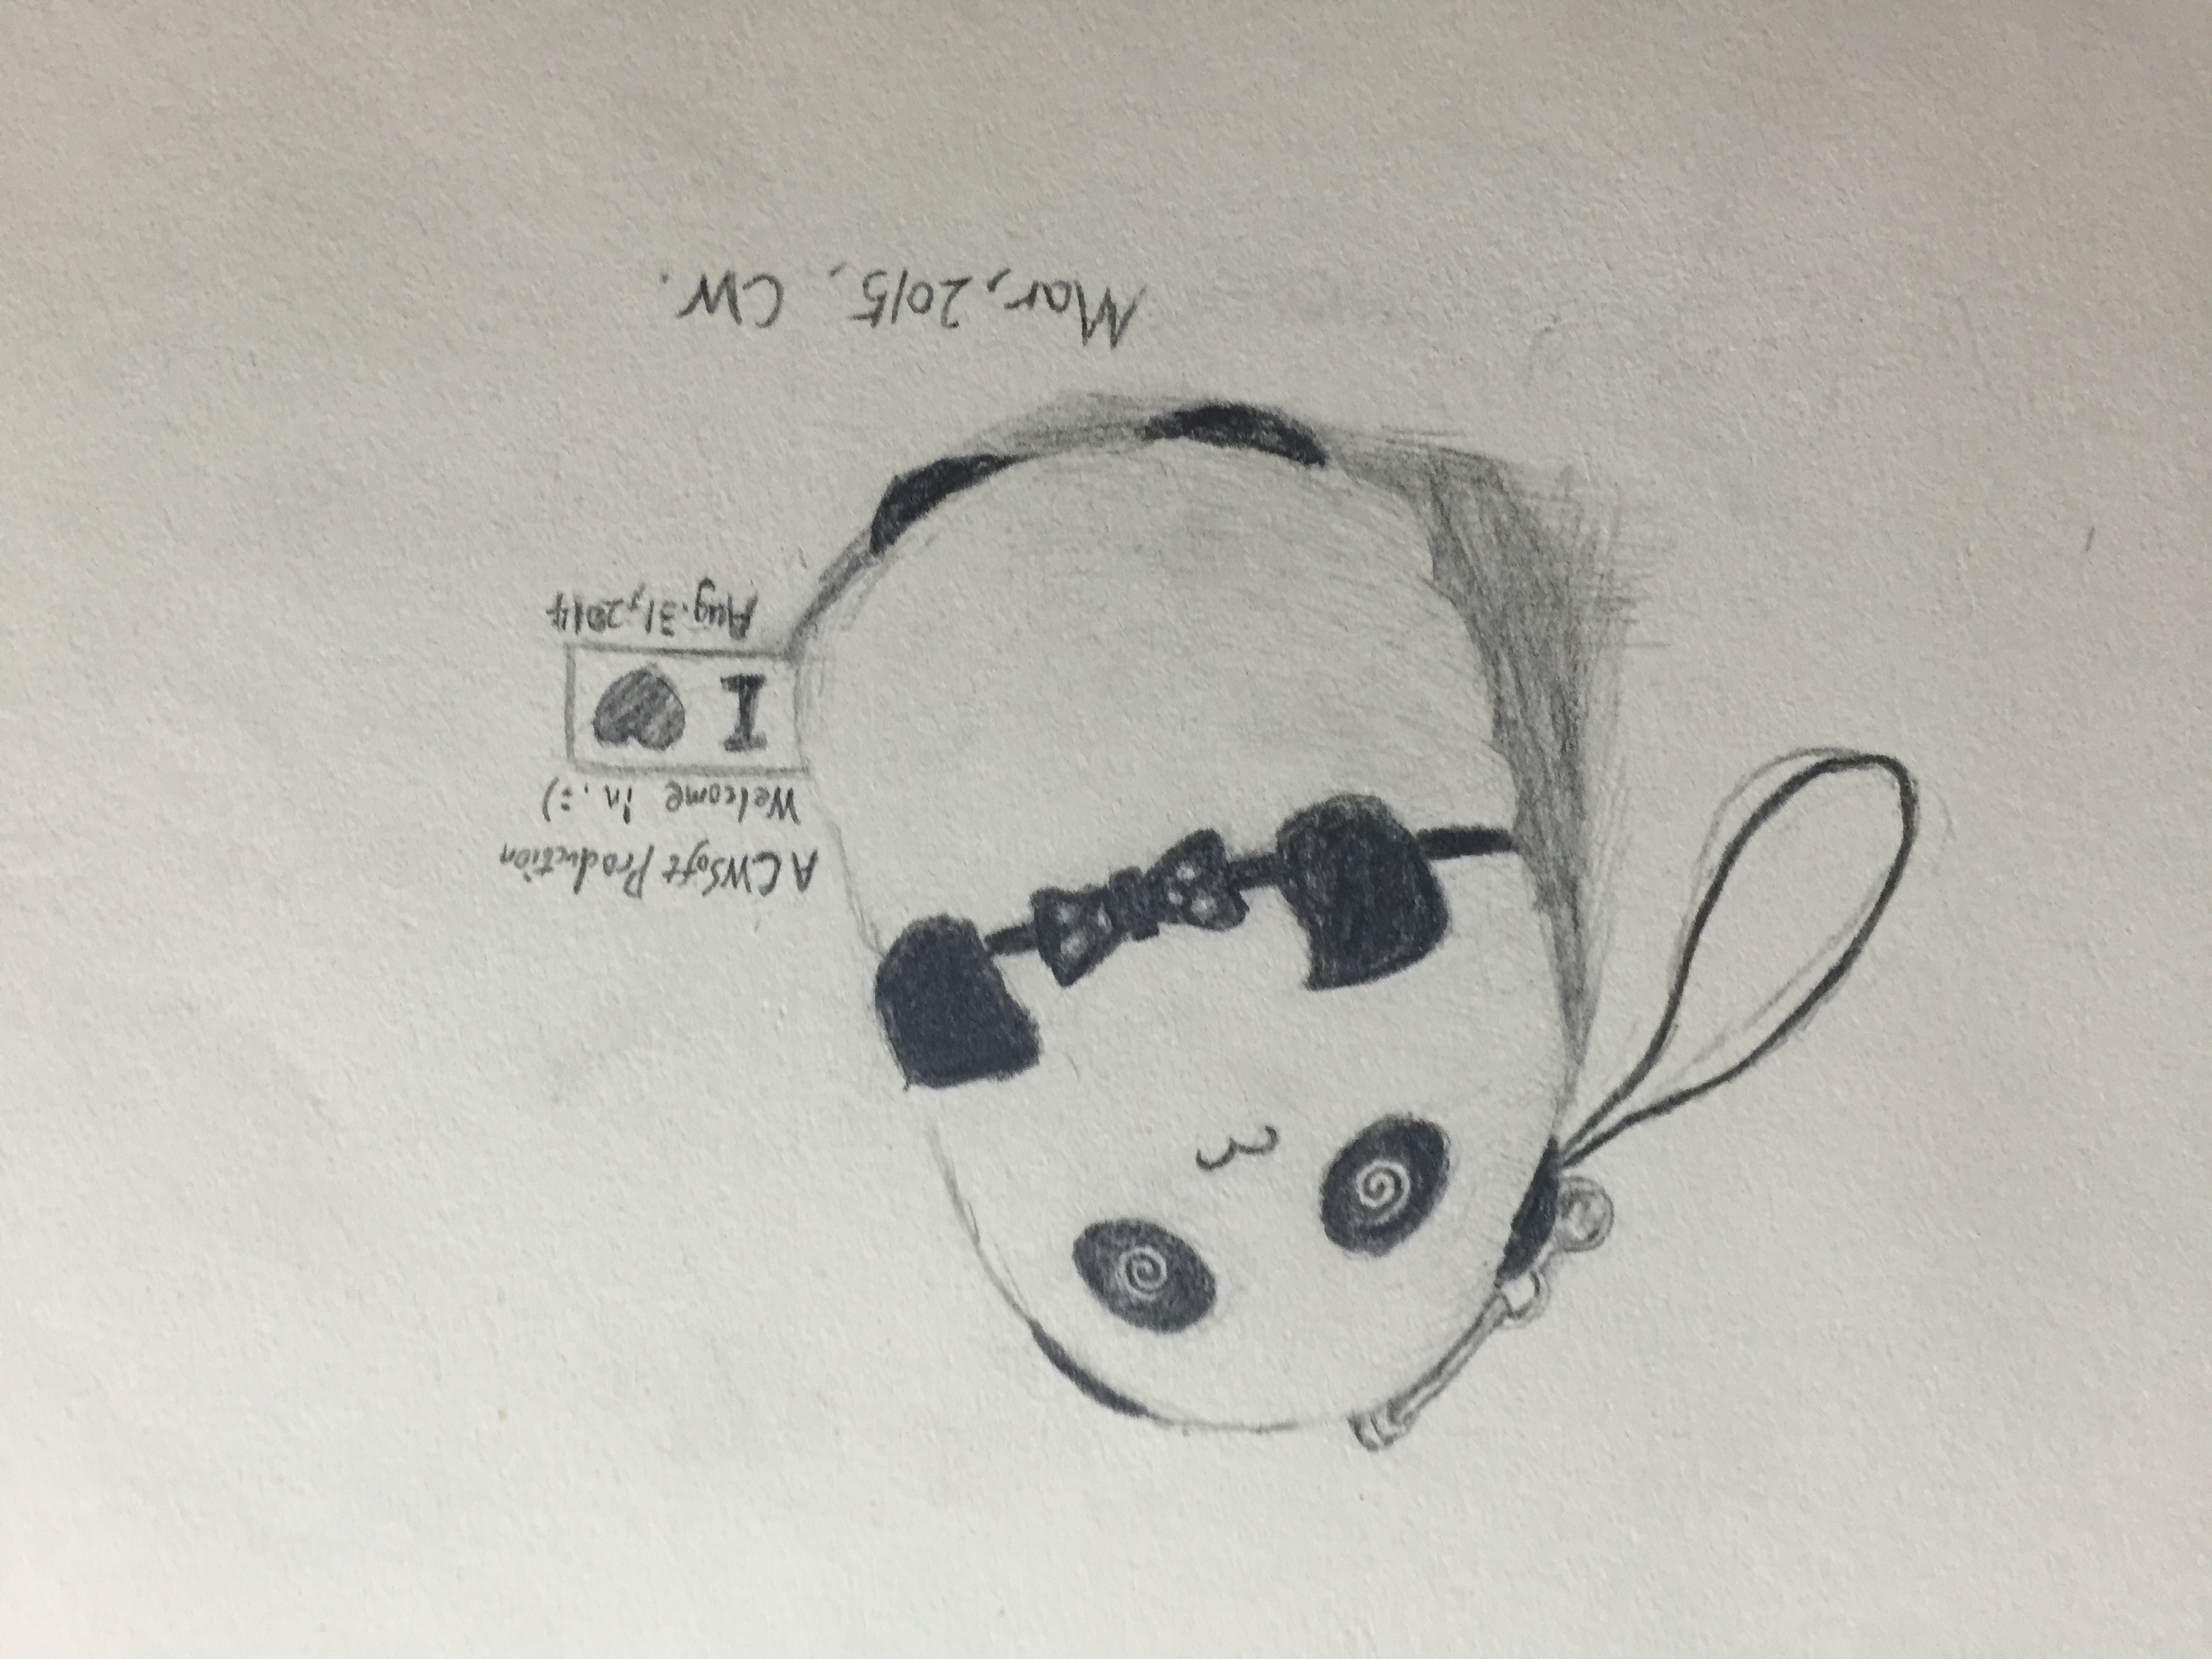 A CWSoft Production
Welcome in. :)
I ♥
Aug. 31, 2014
Mar, 2015, CW.